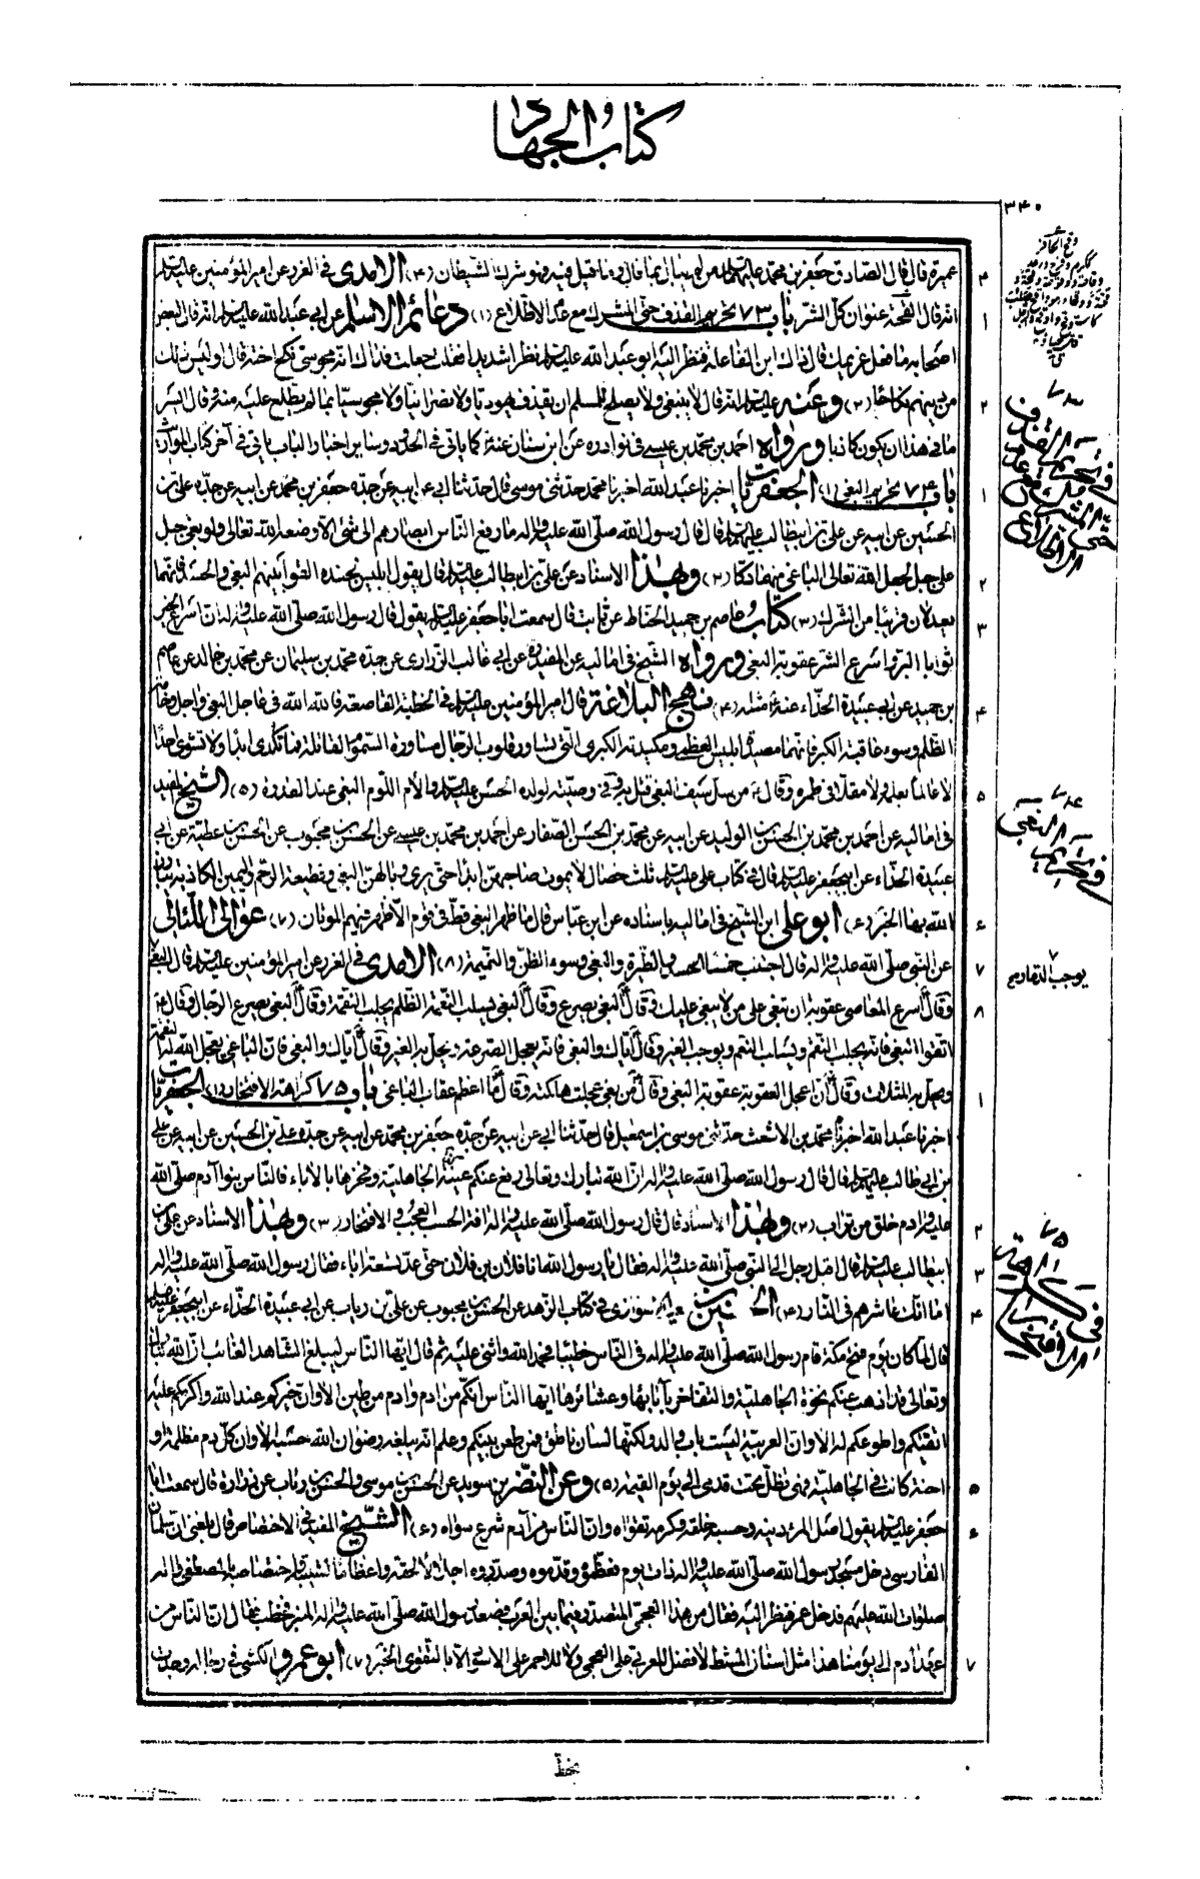 كتاب الجهاد
٣٤٠
عميرة قال قال الصادق جعفر بن محمد عليهما السلام من لم يبال بما قال وما قيل فيه فهو شرك الشيطان (٤) الآمدي في الغرر عن امير المؤمنين عليه السلام
انه قال القحة عنوان كل الشر باب ٧٣ تحريم القذف حتى المشرك مع عدم الاطلاع (١) دعائم الاسلام عن ابي عبد الله عليه السلام انه قال لبعض
اصحابه ما فعل غريمك قال ذاك ابن الفاعلة فنظر اليه ابو عبد الله عليه السلام نظرا شديدا فقلت جعلت فداك انه مجوسي نكح اخته قال اوليس ذلك
من دينهم نكاحا (٢) وعنه عليه السلام انه قال لا ينبغي ولا يصلح للمسلم ان يقذف يهوديا ولا نصرانيا ولا مجوسيا بما لم يطلع عليه منه وقال ايسر
ما في هذا ان يكون كاذبا ورواه احمد بن محمد بن عيسى في نوادره عن ابن سنان عنه كما ياتي في الحدود وساير اخبار الباب ياتي في آخر كتاب المواريث
باب ٧٤ تحريم البغي (١) الجعفريات اخبرنا عبد الله اخبرنا محمد حدثني موسى قال حدثنا ابي عن ابيه عن جده جعفر بن محمد عن ابيه عن جده علي بن
الحسين عن ابيه عن علي بن ابيطالب عليهم السلام قال قال رسول الله صلى الله عليه واله ما رفع الناس ابصارهم الى شئ الا وضعه الله تعالى ولو بغى جبل
على جبل لجعل الله تعالى الباغي منهما دكا (٢) وبهذا الاسناد عن علي بن ابيطالب عليه السلام قال يقول ابليس لجنده القوا بينهم البغي والحسد فانهما
يعدلان قريبا من الشرك (٣) كتاب عاصم بن حميد الحناط عن ثابت قال سمعت ابا جعفر عليه السلام يقول قال رسول الله صلى الله عليه واله ان اسرع الخير
ثوابا البر واسرع الشر عقوبة البغي ورواه الشيخ في اماليه عن المفيد عن ابي غالب الزراري عن جده محمد بن سليمان عن محمد بن خالد عن عاصم
بن حميد عن ابي عبيدة الحذاء عنه مثله (٤) نهج البلاغة قال امير المؤمنين عليه السلام في الخطبة القاصعة فالله الله في عاجل البغي واجل وخامة
الظلم وسوء عاقبة الكبر فانهما مصيدة ابليس العظمى ومكيدته الكبرى التي تساور قلوب الرجال مساورة السموم القاتلة فما تكدى ابدا ولا تشوى احدا
لا عالما بعلمه ولا مقلا في طمره وقال من سل سيف البغي قتل به وفي وصيته لولده الحسن عليه السلام والام اللوم البغي عند القدرة (٥) الشيخ المفيد
في اماليه عن احمد بن محمد بن الحسن بن الوليد عن ابيه عن محمد بن الحسن الصفار عن احمد بن محمد بن عيسى عن الحسن بن محبوب عن الحسن بن عطية عن ابي
عبيدة الحذاء عن ابيجعفر عليه السلام قال في كتاب علي عليه السلام ثلث خصال لا يموت صاحبهن ابدا حتى يرى وبالهن البغي وقطيعة الرحم واليمين الكاذبة يبارز
الله بها الخبر (٦) ابو علي ابن الشيخ في اماليه باسناده عن ابن عباس قال ما ظهر البغي قط في قوم الا ظهر فيهم الموتان (٧) عوالي اللئالي
عن النبي صلى الله عليه واله قال اجتنب خمسا الحسد والطيرة والبغي وسوء الظن والنميمة (٨) الآمدي في الغرر عن امير المؤمنين عليه السلام قال البغي
وقال اسرع المعاصي عقوبة ان تبغي على من لا يبغي عليك وقال البغي يصرع وقال البغي يسلب النعمة الظلم يجلب النقمة وقال البغي يصرع الرجال وقال
اتقوا البغي فانه يجلب النقم ويسلب النعم ويوجب الغير وقال اياك والبغي فانه يعجل الصرعة ويحل به الغير وقال اياك والبغي فان الباغي يعجل الله له النقمة
ويحل به المثلات وقال ان اعجل العقوبة عقوبة البغي وقال من بغى عجلت هلكته وقال ما اعظم عقاب الباغي باب ٧٥ كراهة الافتخار (١) الجعفريات
اخبرنا عبد الله اخبرنا محمد بن الاشعث حدثني موسى بن اسمعيل قال حدثنا ابي عن ابيه عن جده جعفر بن محمد عن ابيه عن جده علي بن الحسين عن ابيه عن علي
بن ابي طالب عليهم السلام قال قال رسول الله صلى الله عليه واله ان الله تبارك وتعالى رفع عنكم عبية الجاهلية وفخرها بالاباء فالناس بنوا آدم صلى الله
عليه وادم خلق من تراب (٢) وبهذا الاسناد قال قال رسول الله صلى الله عليه واله افة الحسب العجب والافتخار (٣) وبهذا الاسناد عن علي بن
ابيطالب عليه السلام قال اقبل رجل الى النبي صلى الله عليه واله فقال يا رسول الله انا فلان بن فلان حتى عد تسعة اباء فقال رسول الله صلى الله عليه واله
اما انك عاشرهم في النار (٤) الحسين بن سعيد الاهوازي في كتاب الزهد عن الحسن بن محبوب عن علي بن رياب عن ابي عبيدة الحذاء عن ابيجعفر عليه السلام
قال لما كان يوم فتح مكة قام رسول الله صلى الله عليه واله في الناس خطيبا فحمد الله واثنى عليه ثم قال ايها الناس ليبلغ الشاهد الغائب ان الله تبارك
وتعالى قد اذهب عنكم نخوة الجاهلية والتفاخر بآبائها وعشائرها ايها الناس انكم من ادم وادم من طين الا وان خيركم عند الله واكرمكم عليه
اتقيكم واطوعكم له الا وان العربية ليست باب والد ولكنها لسان ناطق فمن طعن بينكم وعلم انه يبلغه رضوان الله حسبه الا وان كل دم مظلمة او
احنة كانت في الجاهلية فهي تظل تحت قدمي الى يوم القيمة (٥) وعن النضر بن سويد عن الحسن بن موسى والحسن بن رئاب عن زرارة قال سمعت ابا
جعفر عليه السلام يقول اصل المرء دينه وحسبه خلقه وكرمه تقواه وان الناس من آدم شرع سواه (٦) الشيخ المفيد في الاختصاص قال بلغني ان سلمان
الفارسي دخل مسجد رسول الله صلى الله عليه واله ذات يوم فعظموه وقدموه وصدروه اجلالا لحقه واعظاما لشيبته واختصاصه بالمصطفى واله
صلوات الله عليهم فدخل عمر فنظر اليه فقال من هذا العجمي المتصدر فيما بين العرب فصعد رسول الله صلى الله عليه واله المنبر فخطب فقال ان الناس من
عهد آدم الى يومنا هذا مثل اسنان المشط لا فضل للعربي على العجمي ولا للاحمر على الاسود الا بالتقوى الخبر (٧) ابو عمرو الكشي في رجاله وجدت
٧٣
في تحريم القذف حتى المشرك مع عدم الاطلاع
٧٤
في تحريم البغي
يوجب الدمار
٧٥
في كراهة الافتخار
بخط